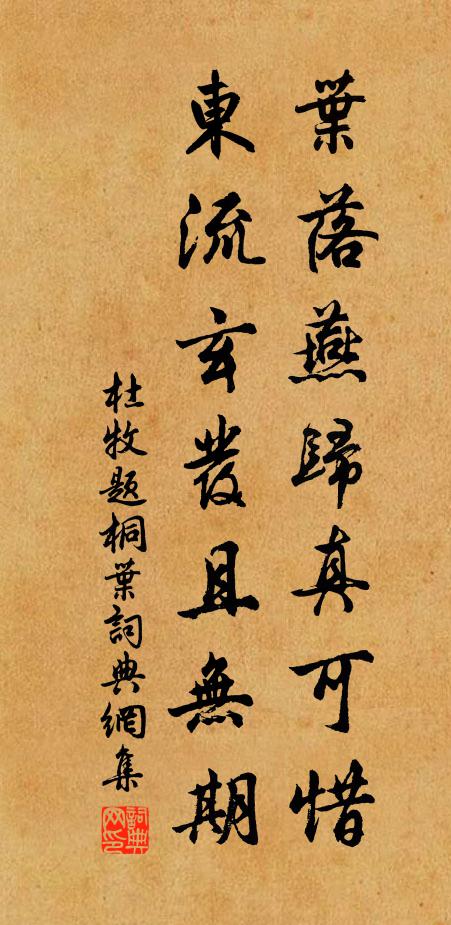 葉落燕歸真可惜
東流玄發且無期
杜牧題桐葉詞典網集
詞典网印